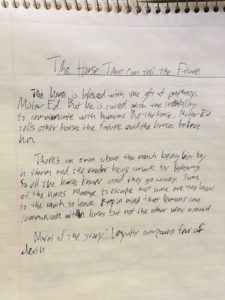 The Horse That Can tell the Future
The Horse is blessed with the gift of prophecy.
Mister Ed. But he is cursed with the inability
to communicate with humans. But the horse, Mister Ed
tells other horses the future and the horses believe
him.
There's an omen about the ranch being hit by
a storm and the rancher being struck by lightning.
So all the horses know and they go away. Some
of the horses manage to escape but some are too loyal
to the ranch to leave. Keep in mind that humans can
communicate with horses but not the other way around
Moral of the story: Loyalty overpowers fear of
death